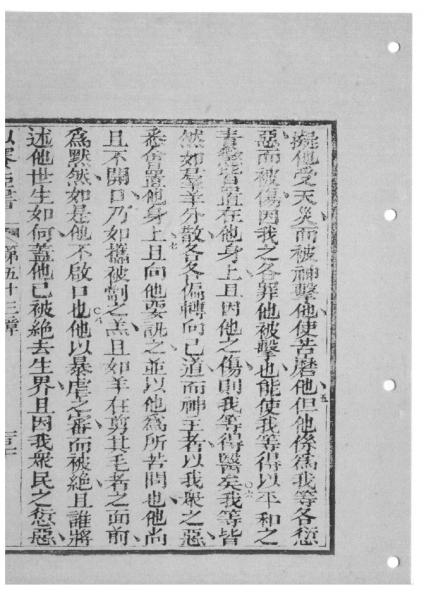 擬他受天災而被神擊他使苦磨他但他係爲我等各愆
惡而被傷因我之各罪他被擊也能使我等得以平和之
責懲皆置在他身上且因他之傷則我等得醫矣我等皆
然如羣羊分散各各偏轉向己道而神主者以我衆之惡
悉皆置他身上且向他要討之並以他爲所苦問也他尚
且不開口乃如攜被割之羔且如羊在剪其毛者之面前
爲默然如是他不啟口也他以暴虐之審而被絕且誰將
述他世生如何蓋他已被絕去生界且因我衆民之愆惡
第五十三章